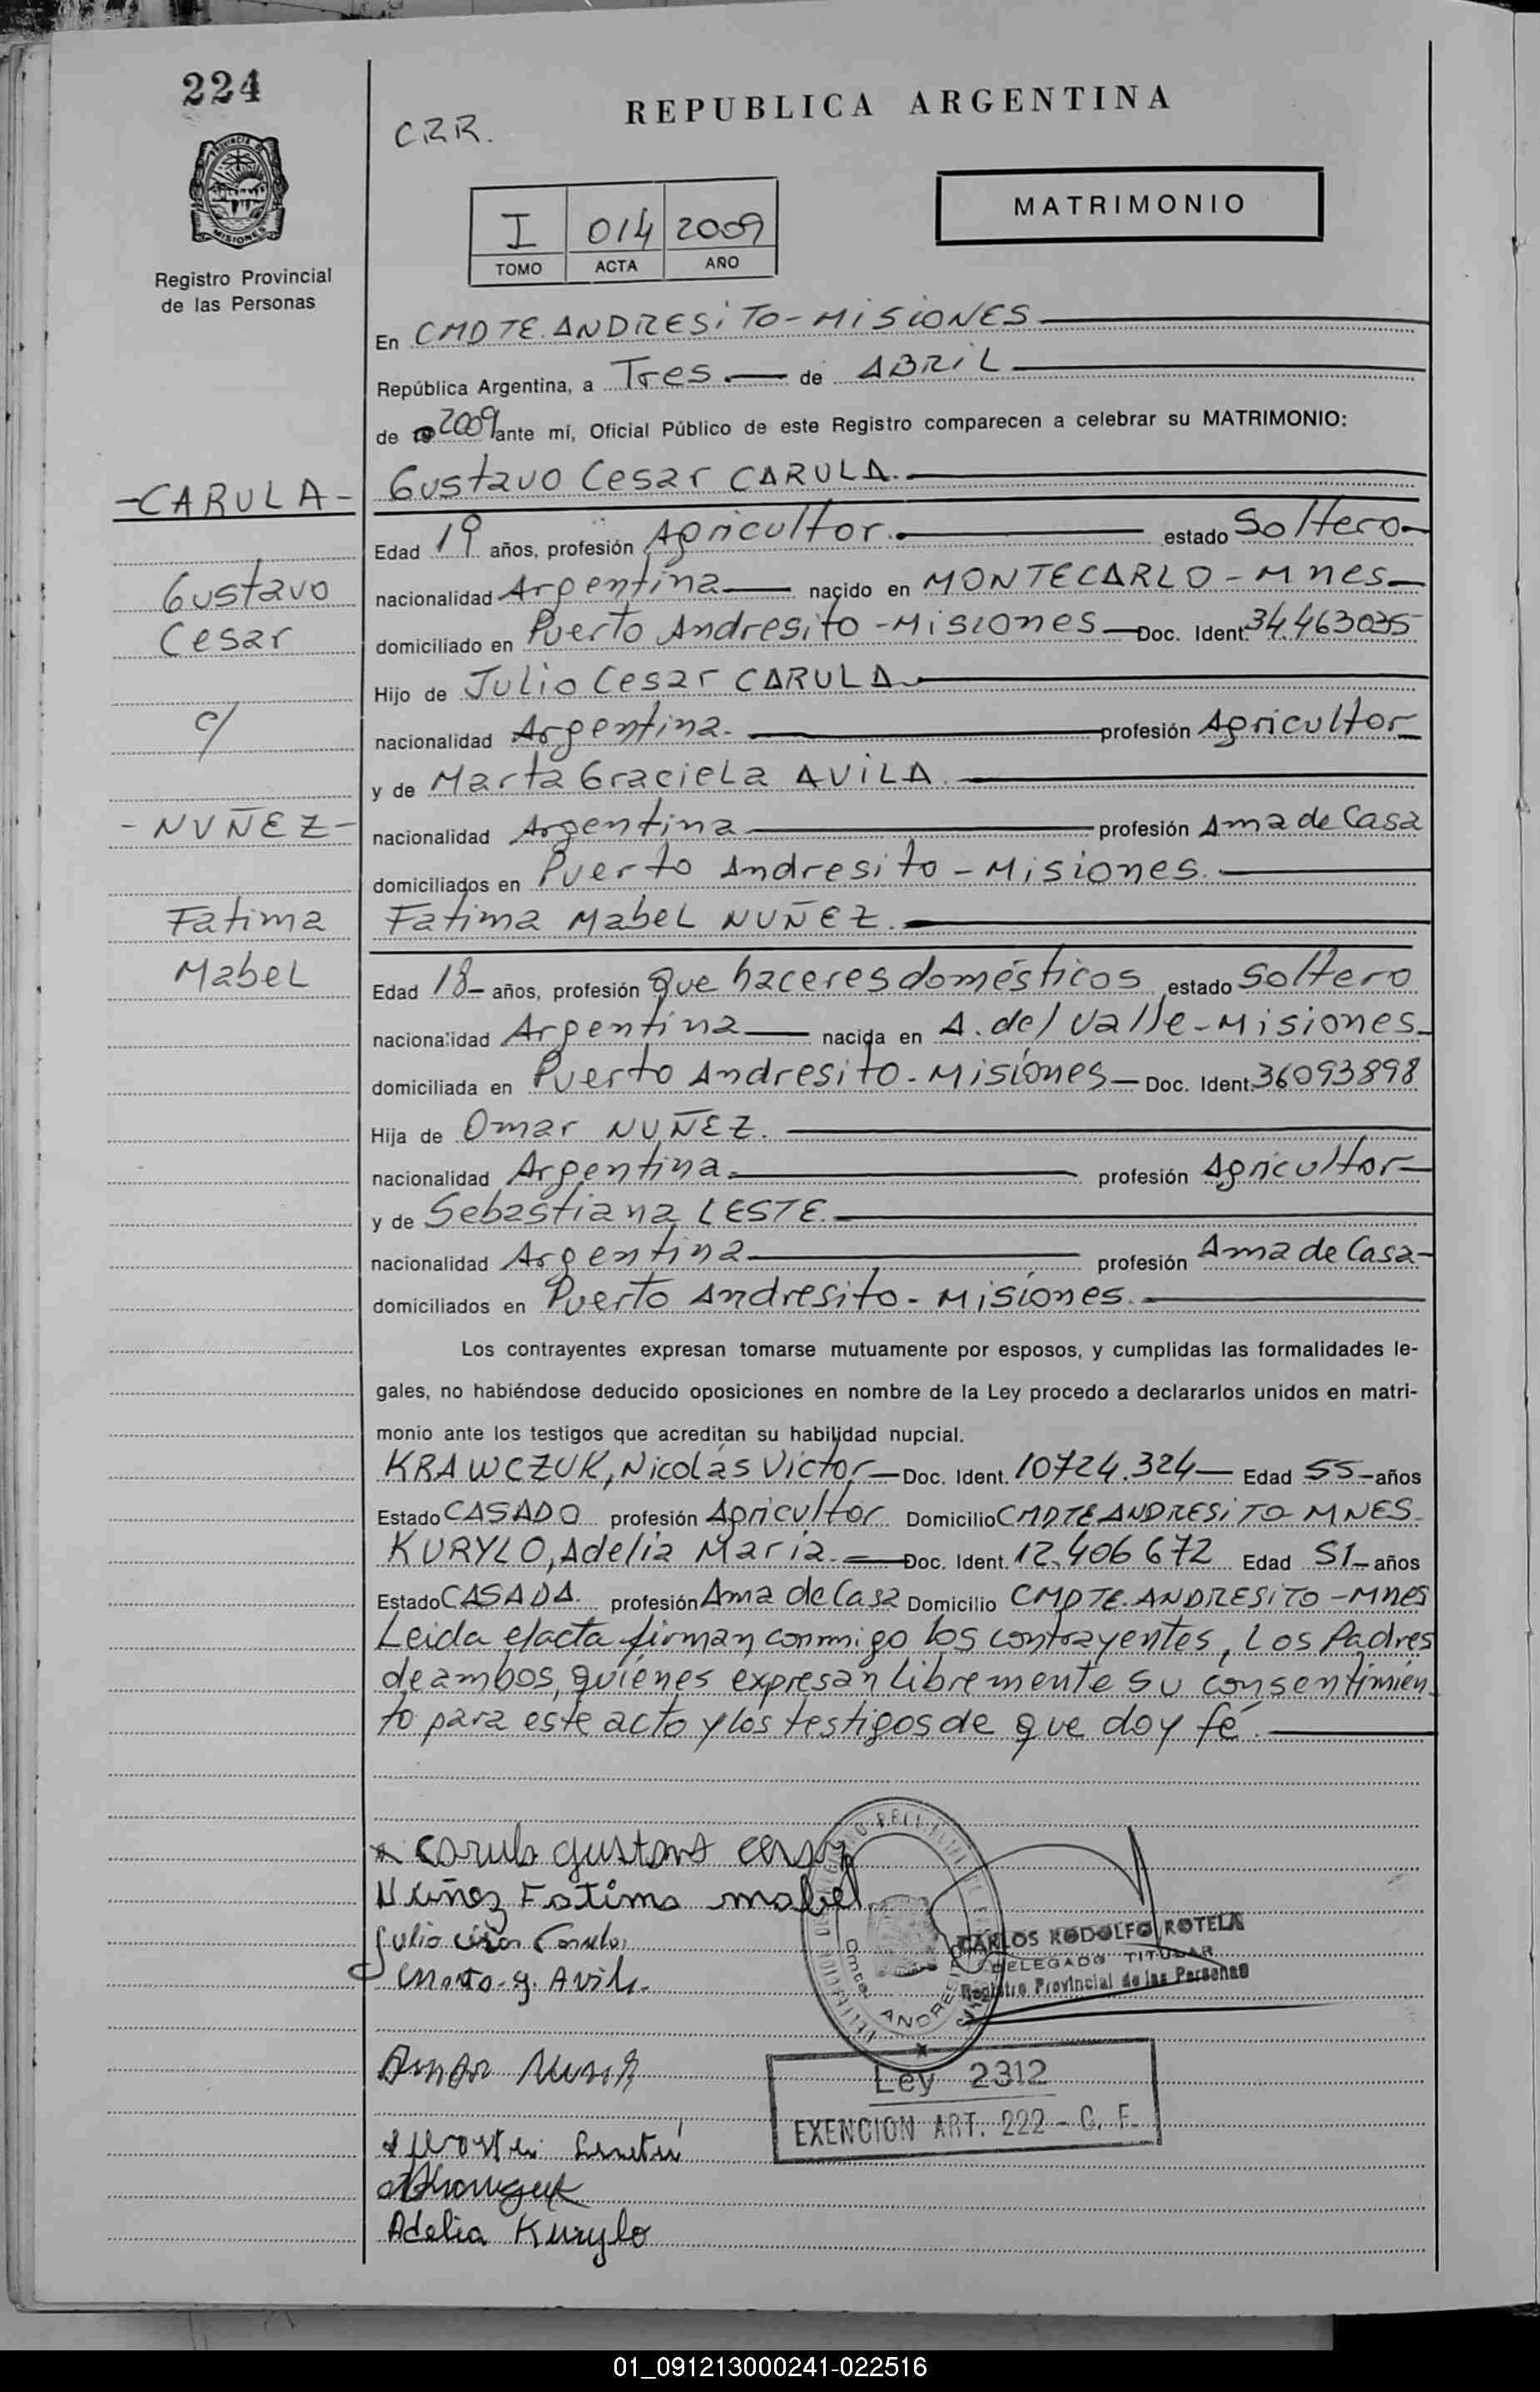 224
REPUBLICA ARGENTINA
CRR.
PROVINCIA DE
MISIONES
Registro Provincial
de las Personas
MATRIMONIO
I 014 2009
TOMO ACTA AÑO
En CMDTE. ANDRESiTO-MiSiONES
República Argentina, a Tres de ABRiL
de 2009 ante mí, Oficial Público de este Registro comparecen a celebrar su MATRIMONIO:
-CARULA- Gustavo Cesar CARULA.
Edad 19 años, profesión Agricultor. estado Soltero
Gustavo nacionalidad Argentina nacido en MONTECARLO-Mnes
Cesar domiciliado en Puerto Andresito-Misiones Doc. Ident. 34.463035
Hijo de Julio Cesar CARULA
c/ nacionalidad Argentina. profesión Agricultor
y de Marta Graciela AViLA.
-NUÑEZ- nacionalidad Argentina profesión Ama de Casa
domiciliados en Puerto Andresito-Misiones.
Fatima Fatima Mabel NUÑEZ.
Mabel Edad 18 años, profesión que haceres domésticos estado Soltero
nacionalidad Argentina nacida en A. del Valle-Misiones
domiciliada en Puerto Andresito-Misiones Doc. Ident. 36093898
Hija de Omar NUÑEZ.
nacionalidad Argentina. profesión Agricultor
y de Sebastiana LESTE.
nacionalidad Argentina profesión Ama de Casa
domiciliados en Puerto Andresito-Misiones.
Los contrayentes expresan tomarse mutuamente por esposos, y cumplidas las formalidades le-
gales, no habiéndose deducido oposiciones en nombre de la Ley procedo a declararlos unidos en matri-
monio ante los testigos que acreditan su habilidad nupcial.
KRAWCZUK, Nicolás Victor Doc. Ident. 10724.324 Edad 55 años
Estado CASADO profesión Agricultor Domicilio CMDTE ANDRESiTO MNES
KURYLO, Adelia Maria. Doc. Ident. 12.406672 Edad 51 años
Estado CASADA. profesión Ama de Casa Domicilio CMDTE. ANDRESiTO-Mnes
Leida el acta firman conmigo los contrayentes, Los Padres
de ambos, quienes expresan Libremente su consentimien-
to para este acto y los testigos de que doy fé.
Carula Gustavo Cesar
Nuñez Fatima mabel
Julio Cesar Carula
Marta g. Avila
CARLOS RODOLFO ROTELA
DELEGADO TITULAR
Registro Provincial de las Personas
Cmte. ANDRESITO
Omar Nuñez
Ley 2312
EXENCION ART. 222 - C. F.
Adelia Kurylo
01_091213000241-022516